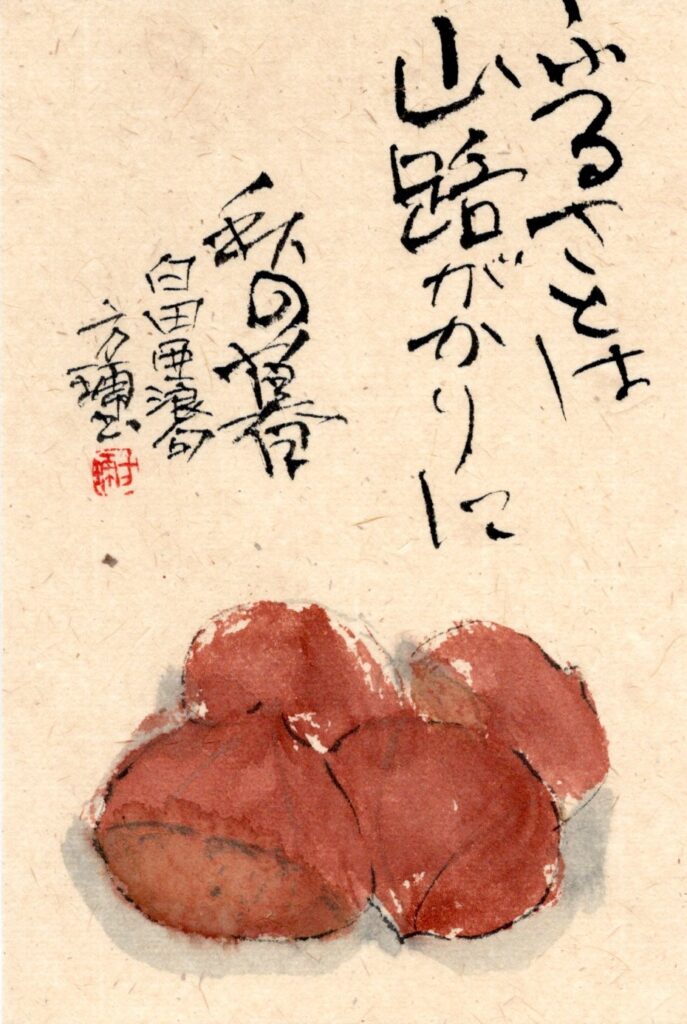 ふるさとは
山路がかりに
秋の暮
臼田亜浪句